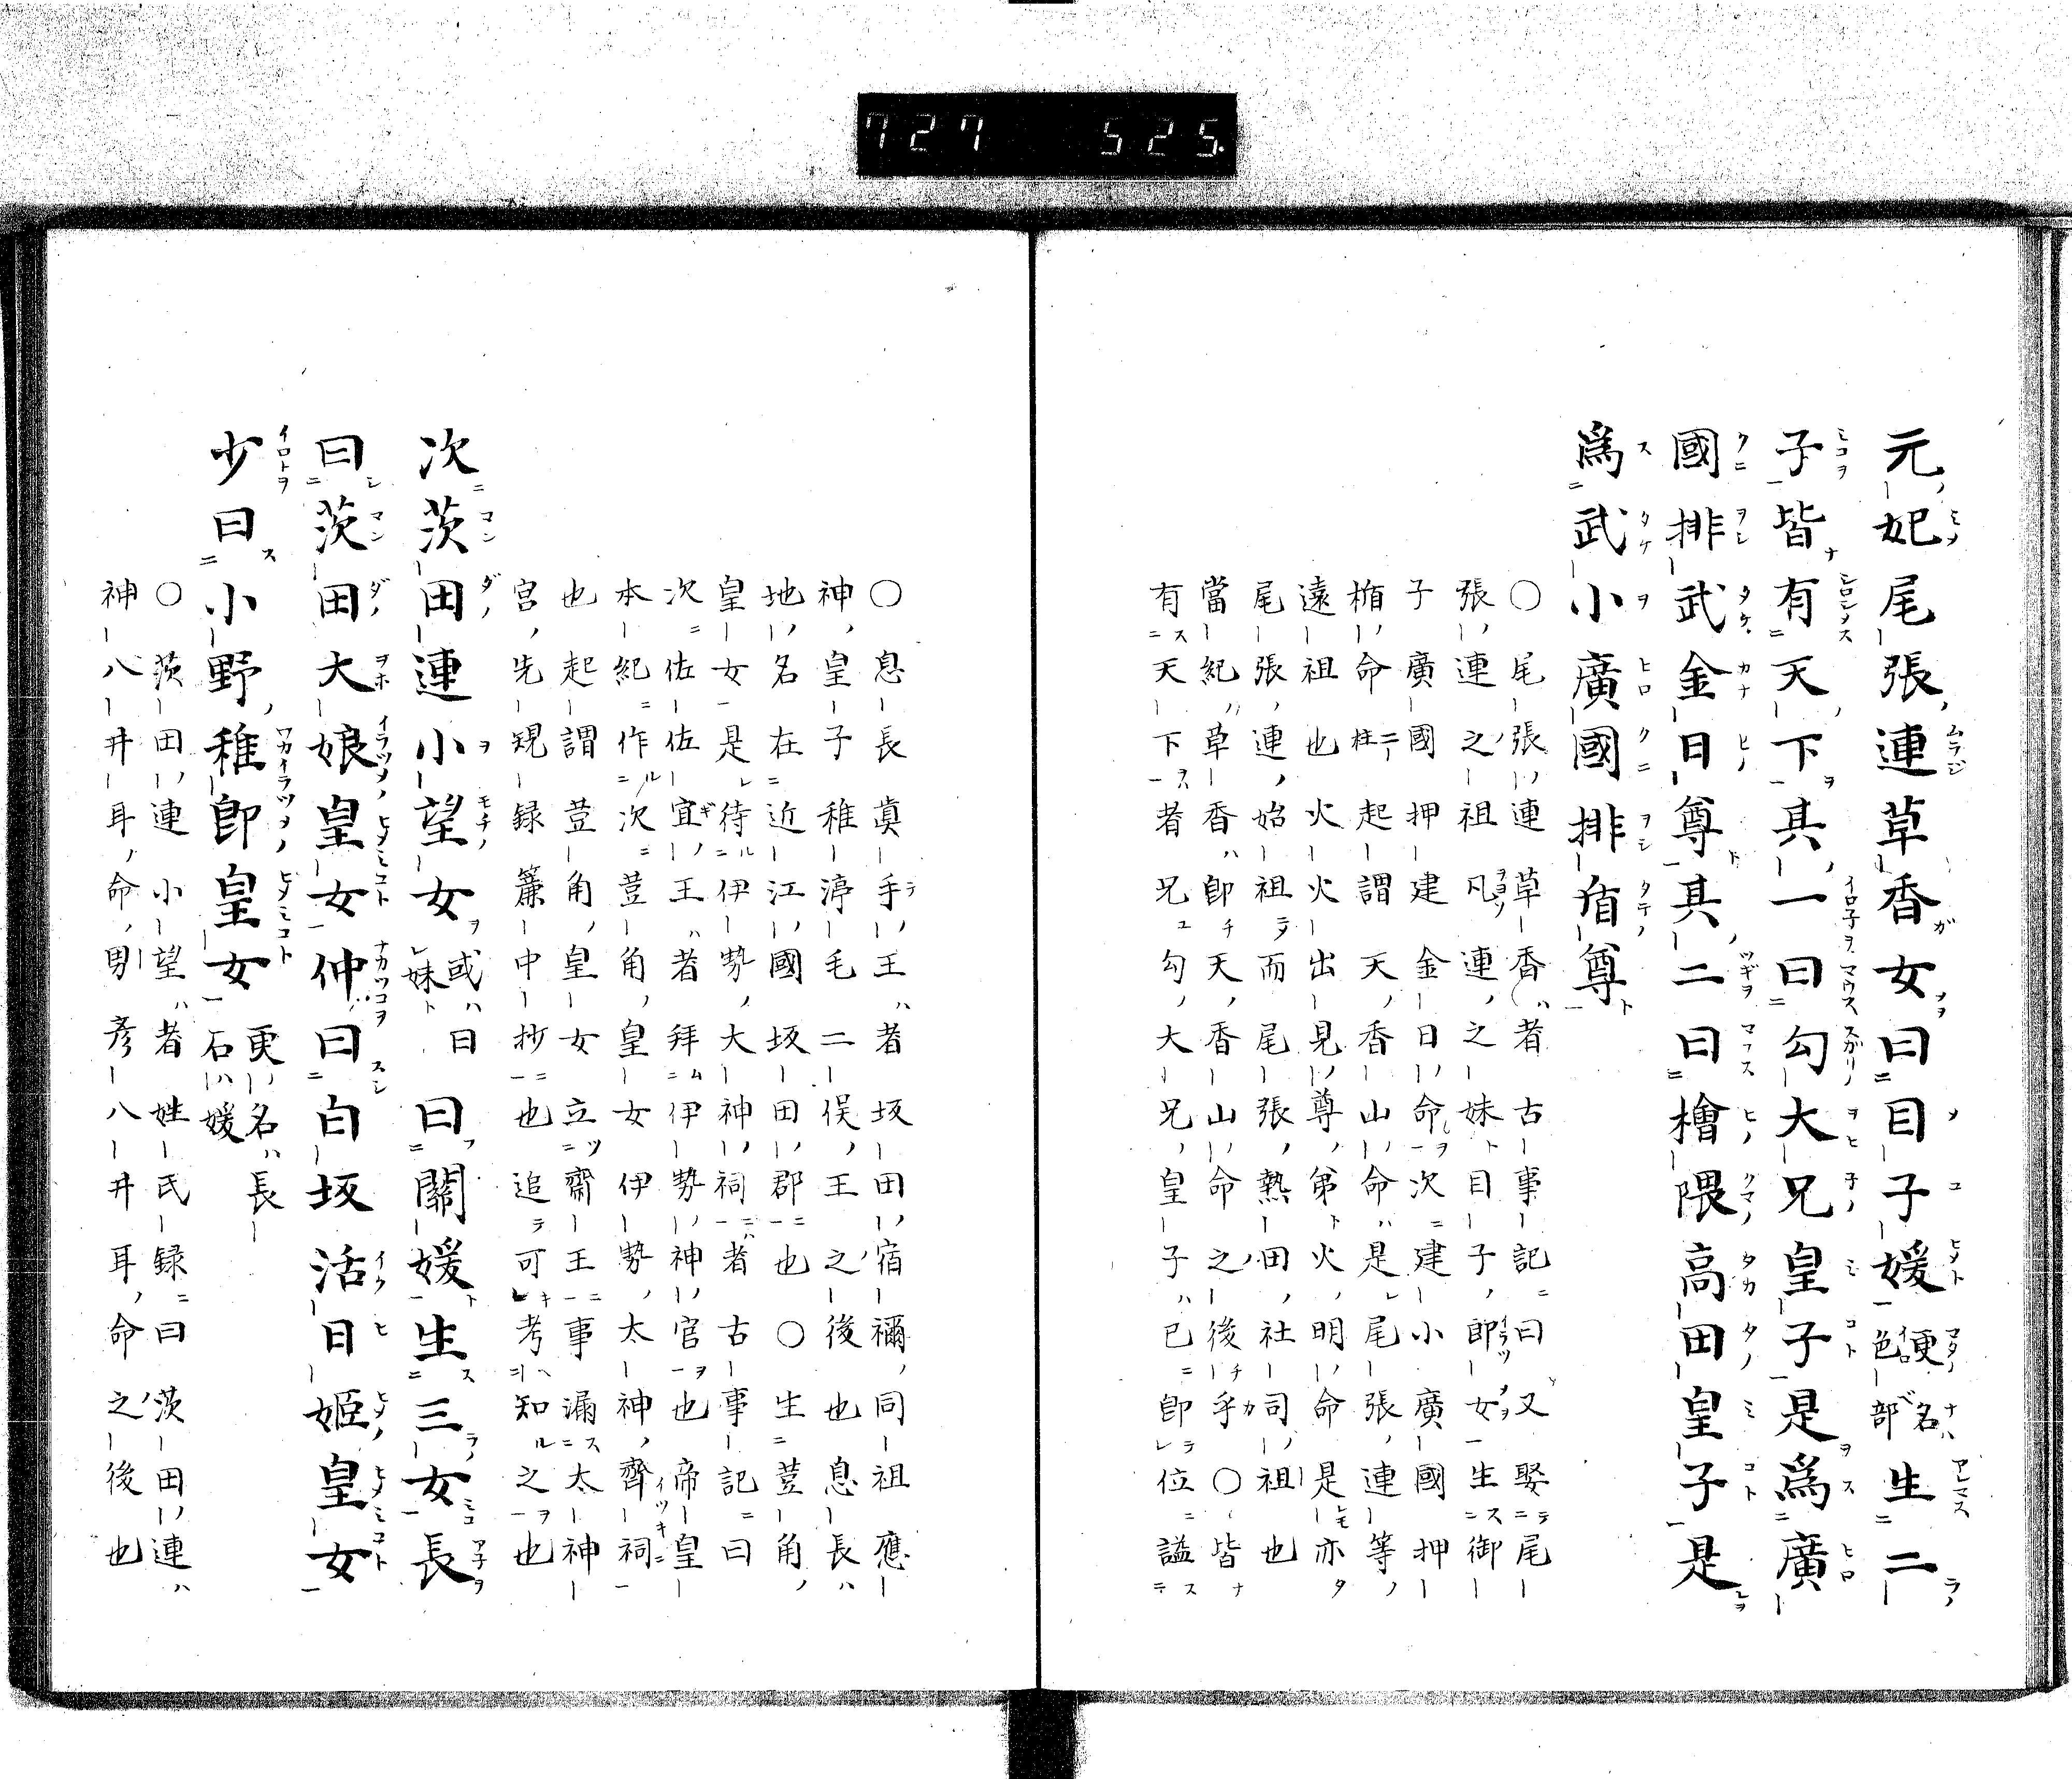 727 525.
元妃尾張連草香女曰目子媛更名色部生二
子皆有天下其一曰勾大兄皇子是爲廣
國排武金日尊其二曰檜隈高田皇子是
爲武小廣國排盾尊
○尾張連草香者古事記曰又娶尾
張連之祖凡連之妹目子郎女生御
子廣國押建金日命次建小廣國押
楯命二柱起謂天香山命是尾張連等
遠祖也火火出見尊弟火明命是亦
尾張連始祖而尾張熱田社司祖也
當紀草香卽天香山命之後乎○皆
有天下者兄勾大兄皇子已卽位謚
○息長眞手王者坂田宿禰同祖應
神皇子稚渟毛二俣王之後也息長
地名在近江國坂田郡也○生荳角
皇女是待伊勢大神祠者古事記曰
次佐佐宜王者拜伊勢神宮也帝皇
本紀作次荳角皇女伊勢太神齊祠
也起謂荳角皇女立齋王事漏太神
宮先規録簾中抄也追可考知之也
次茨田連小望女或曰妹曰關媛生三女長
曰茨田大娘皇女仲曰白坂活日姬皇女
少曰小野稚郎皇女更名長石媛
○茨田連小望者姓氏録曰茨田連
神八井耳命男彦八井耳命之後也